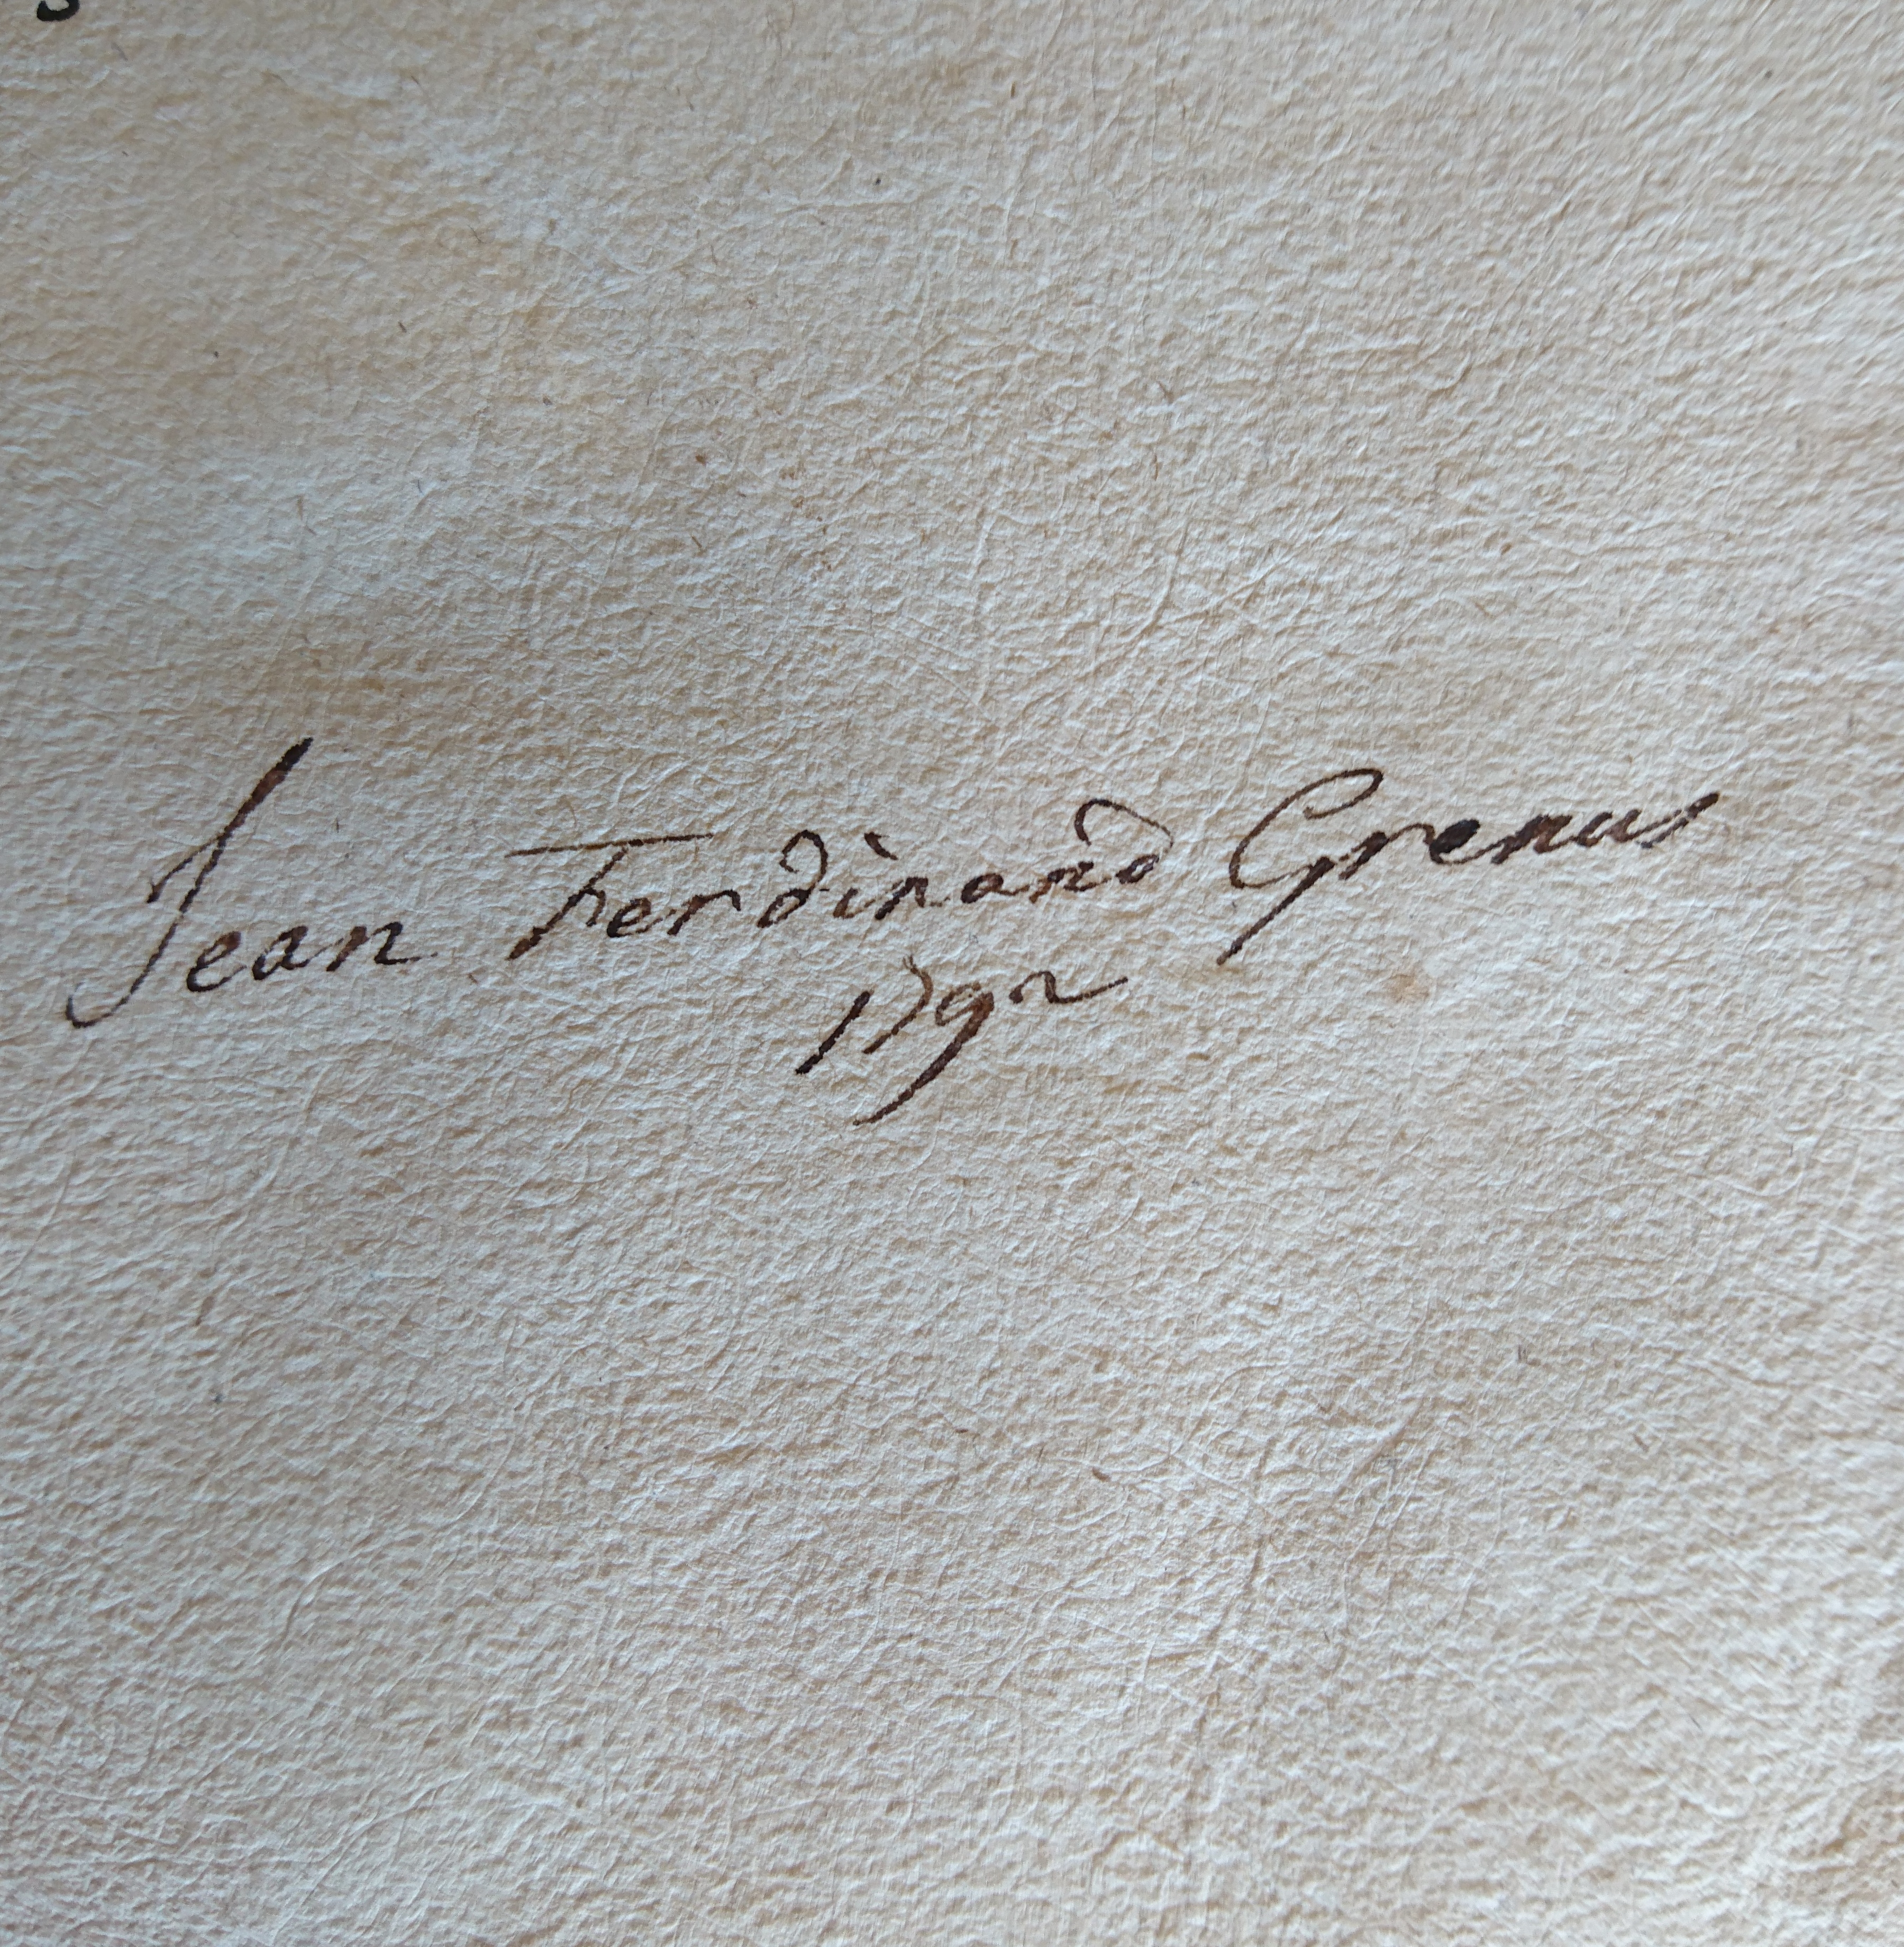 Jean Ferdinand Grenus
1792